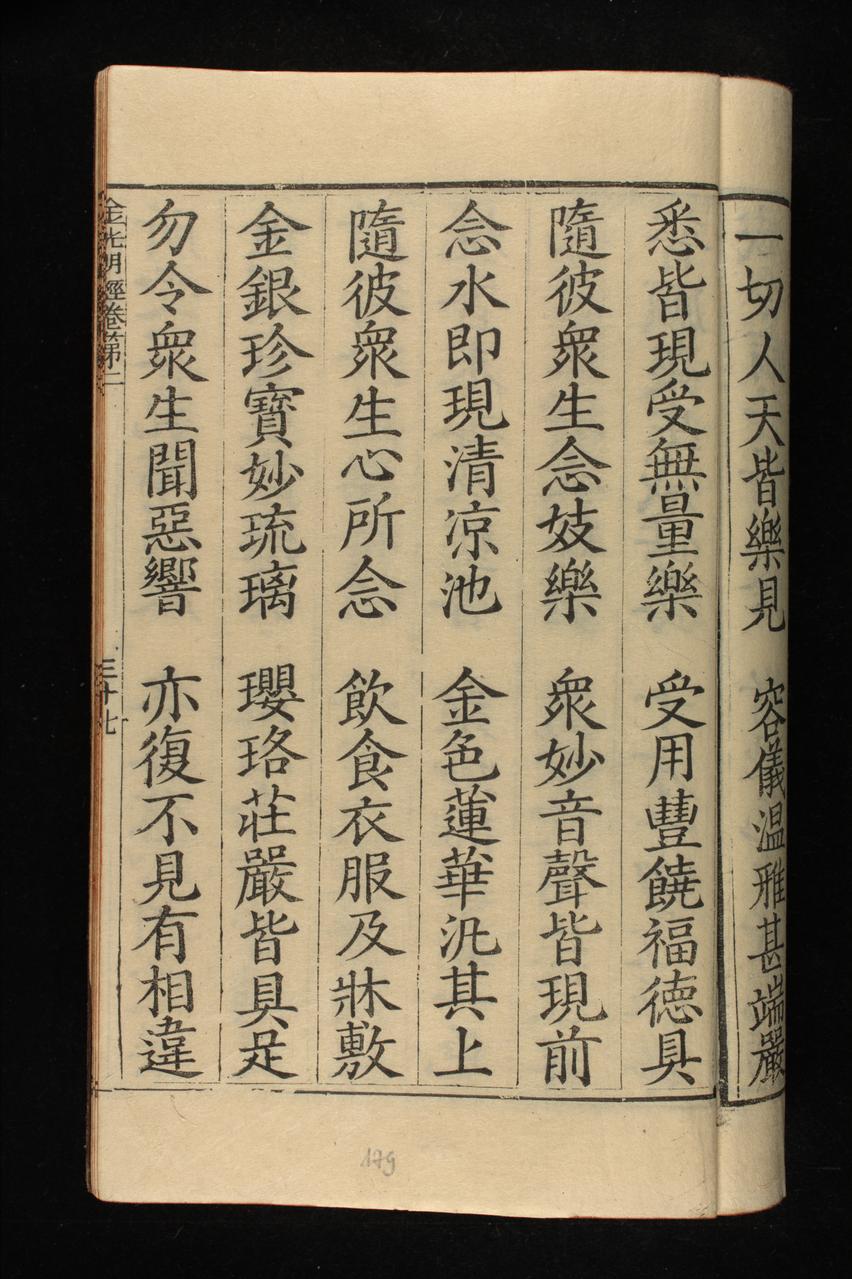 一切人天皆樂見　容儀温雅甚端嚴
悉皆現受無量樂　受用豐饒福德具
隨彼衆生念妓樂　衆妙音聲皆現前
念水即現清凉池　金色蓮華汎其上
隨彼衆生心所念　飲食衣服及牀敷
金銀珍寶妙琉璃　瓔珞莊嚴皆具足
勿令衆生聞惡響　亦復不見有相違
金光明經卷第二　三十七
179